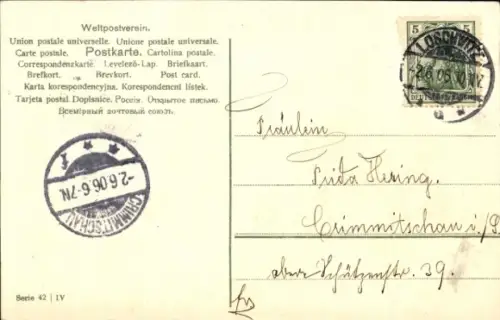 Weltpostverein.
Union postale universelle. Unione postale universale.
Carte postale. Postkarte. Cartolina postale.
Correspondenzkarte. Levelező-Lap. Briefkaart.
Brefkort. Brevkort. Post card.
Karta korespondencyjna. Korespondenční lístek.
Tarjeta postal. Dopisnice. Открытое письмо.
Всемірный почтовый союзъ.
5 5
LOSCHWITZ
2.6.06.
DEUTSCHES REICH
Fräulein
Frida Hering.
Crimmitschau i./S.
obere Schützenstr. 39.
-2.6.06.6-7N
CRIMMITSCHAU
Serie 42 | IV